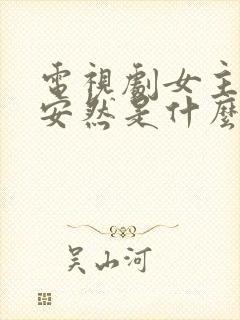 電視劇女主
安然是什麼
吴山河